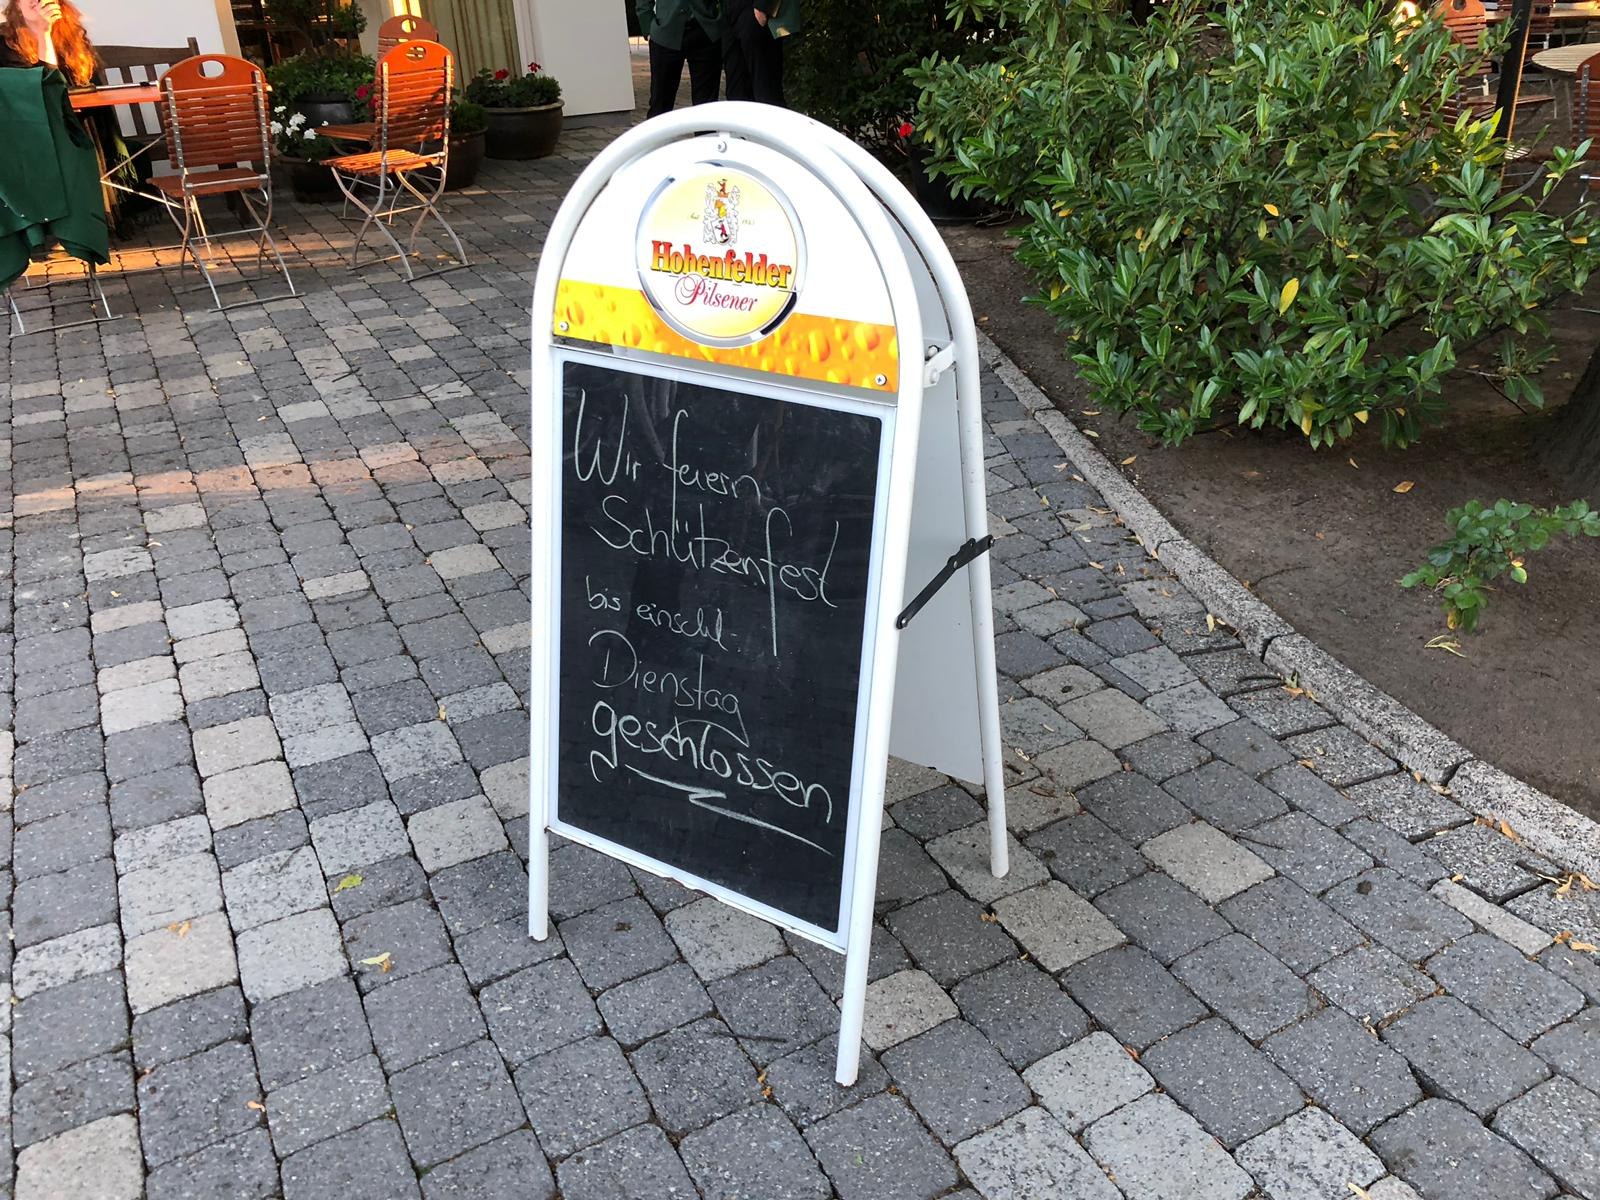 Hohenfelder
Pilsener
Wir feiern
Schützenfest
bis einschl.
Dienstag
geschlossen